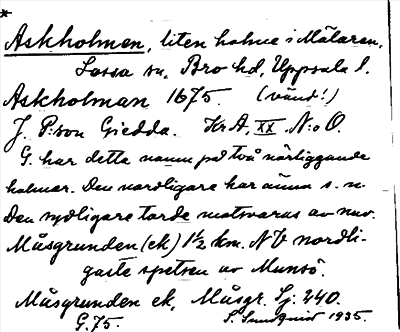 *
Askholmen, liten holme i Mälaren,
Lossa sn, Bro hd, Uppsala l.
Askholman 1675. (vänd!)
J. P:son Giedda. Kr A, XX. N:o O.
G. har detta namn på två närliggande
holmar. Den nordligare har ännu s. n.
Den sydligare torde motsvaras av nuv.
Måsgrunden (ek) 1½ km. NV nordli-
gaste spetsen av Munsö.
Måsgrunden ek, Måsgr. Sj. 240.
G. 75. S. Sundquist 1935.